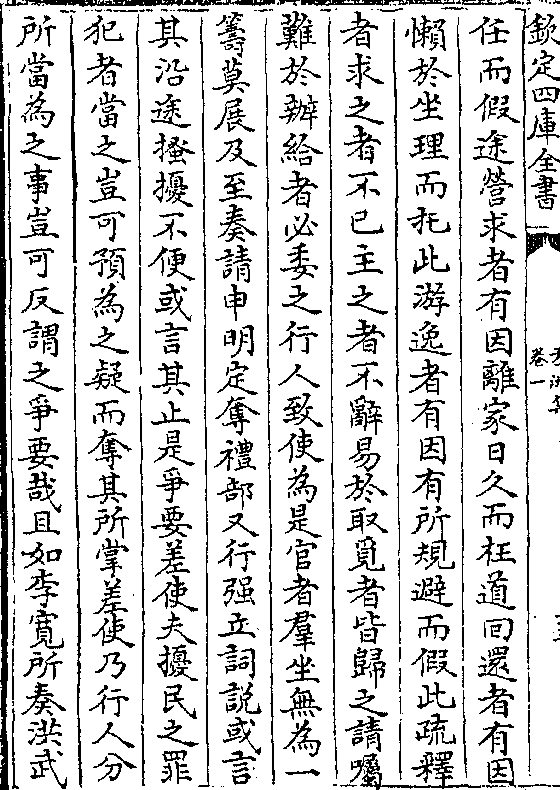 欽定四庫全書
卷一
任而假途營求者有因離家日久而枉道回還者有因
懶於坐理而托此游逸者有因有所規避而假此疏釋
者求之者不已主之者不辭易於取覓者皆歸之請囑
難於辦給者必委之行人致使為是官者羣坐無為一
籌莫展及至奏請申明定奪禮部又行强立詞說或言
其沿途搔擾不便或言其止是爭要差使夫擾民之罪
犯者當之豈可預為之疑而奪其所掌差使乃行人分
所當為之事豈可反謂之爭要哉且如李寬所奏洪武